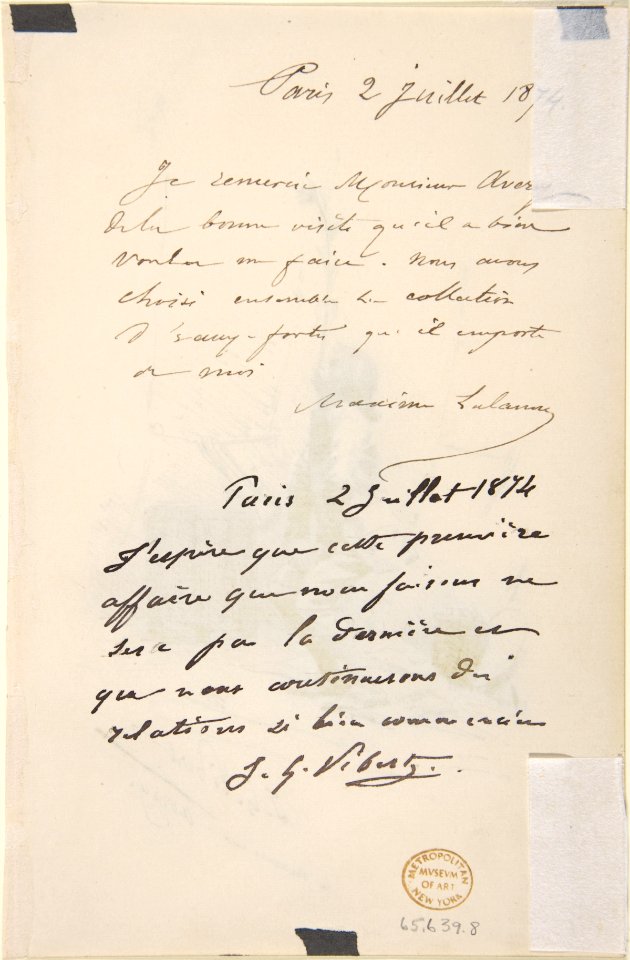 Paris 2 Juillet 1874
Je remercie Monsieur Avery
de la bonne visite qu'il a bien
voulu me faire. Nous avons
choisi ensemble la collection
d'eaux-fortes qu'il emporte
de moi
Maxime Lalanne
Paris 2 Juillet 1874
J'espère que cette première
affaire que nous faisons ne
sera pas la dernière et
que nous continuerons des
relations si bien commencées
J. G. Vibert.
METROPOLITAN
MVSEVM
OF ART
NEW YORK
65.639.8